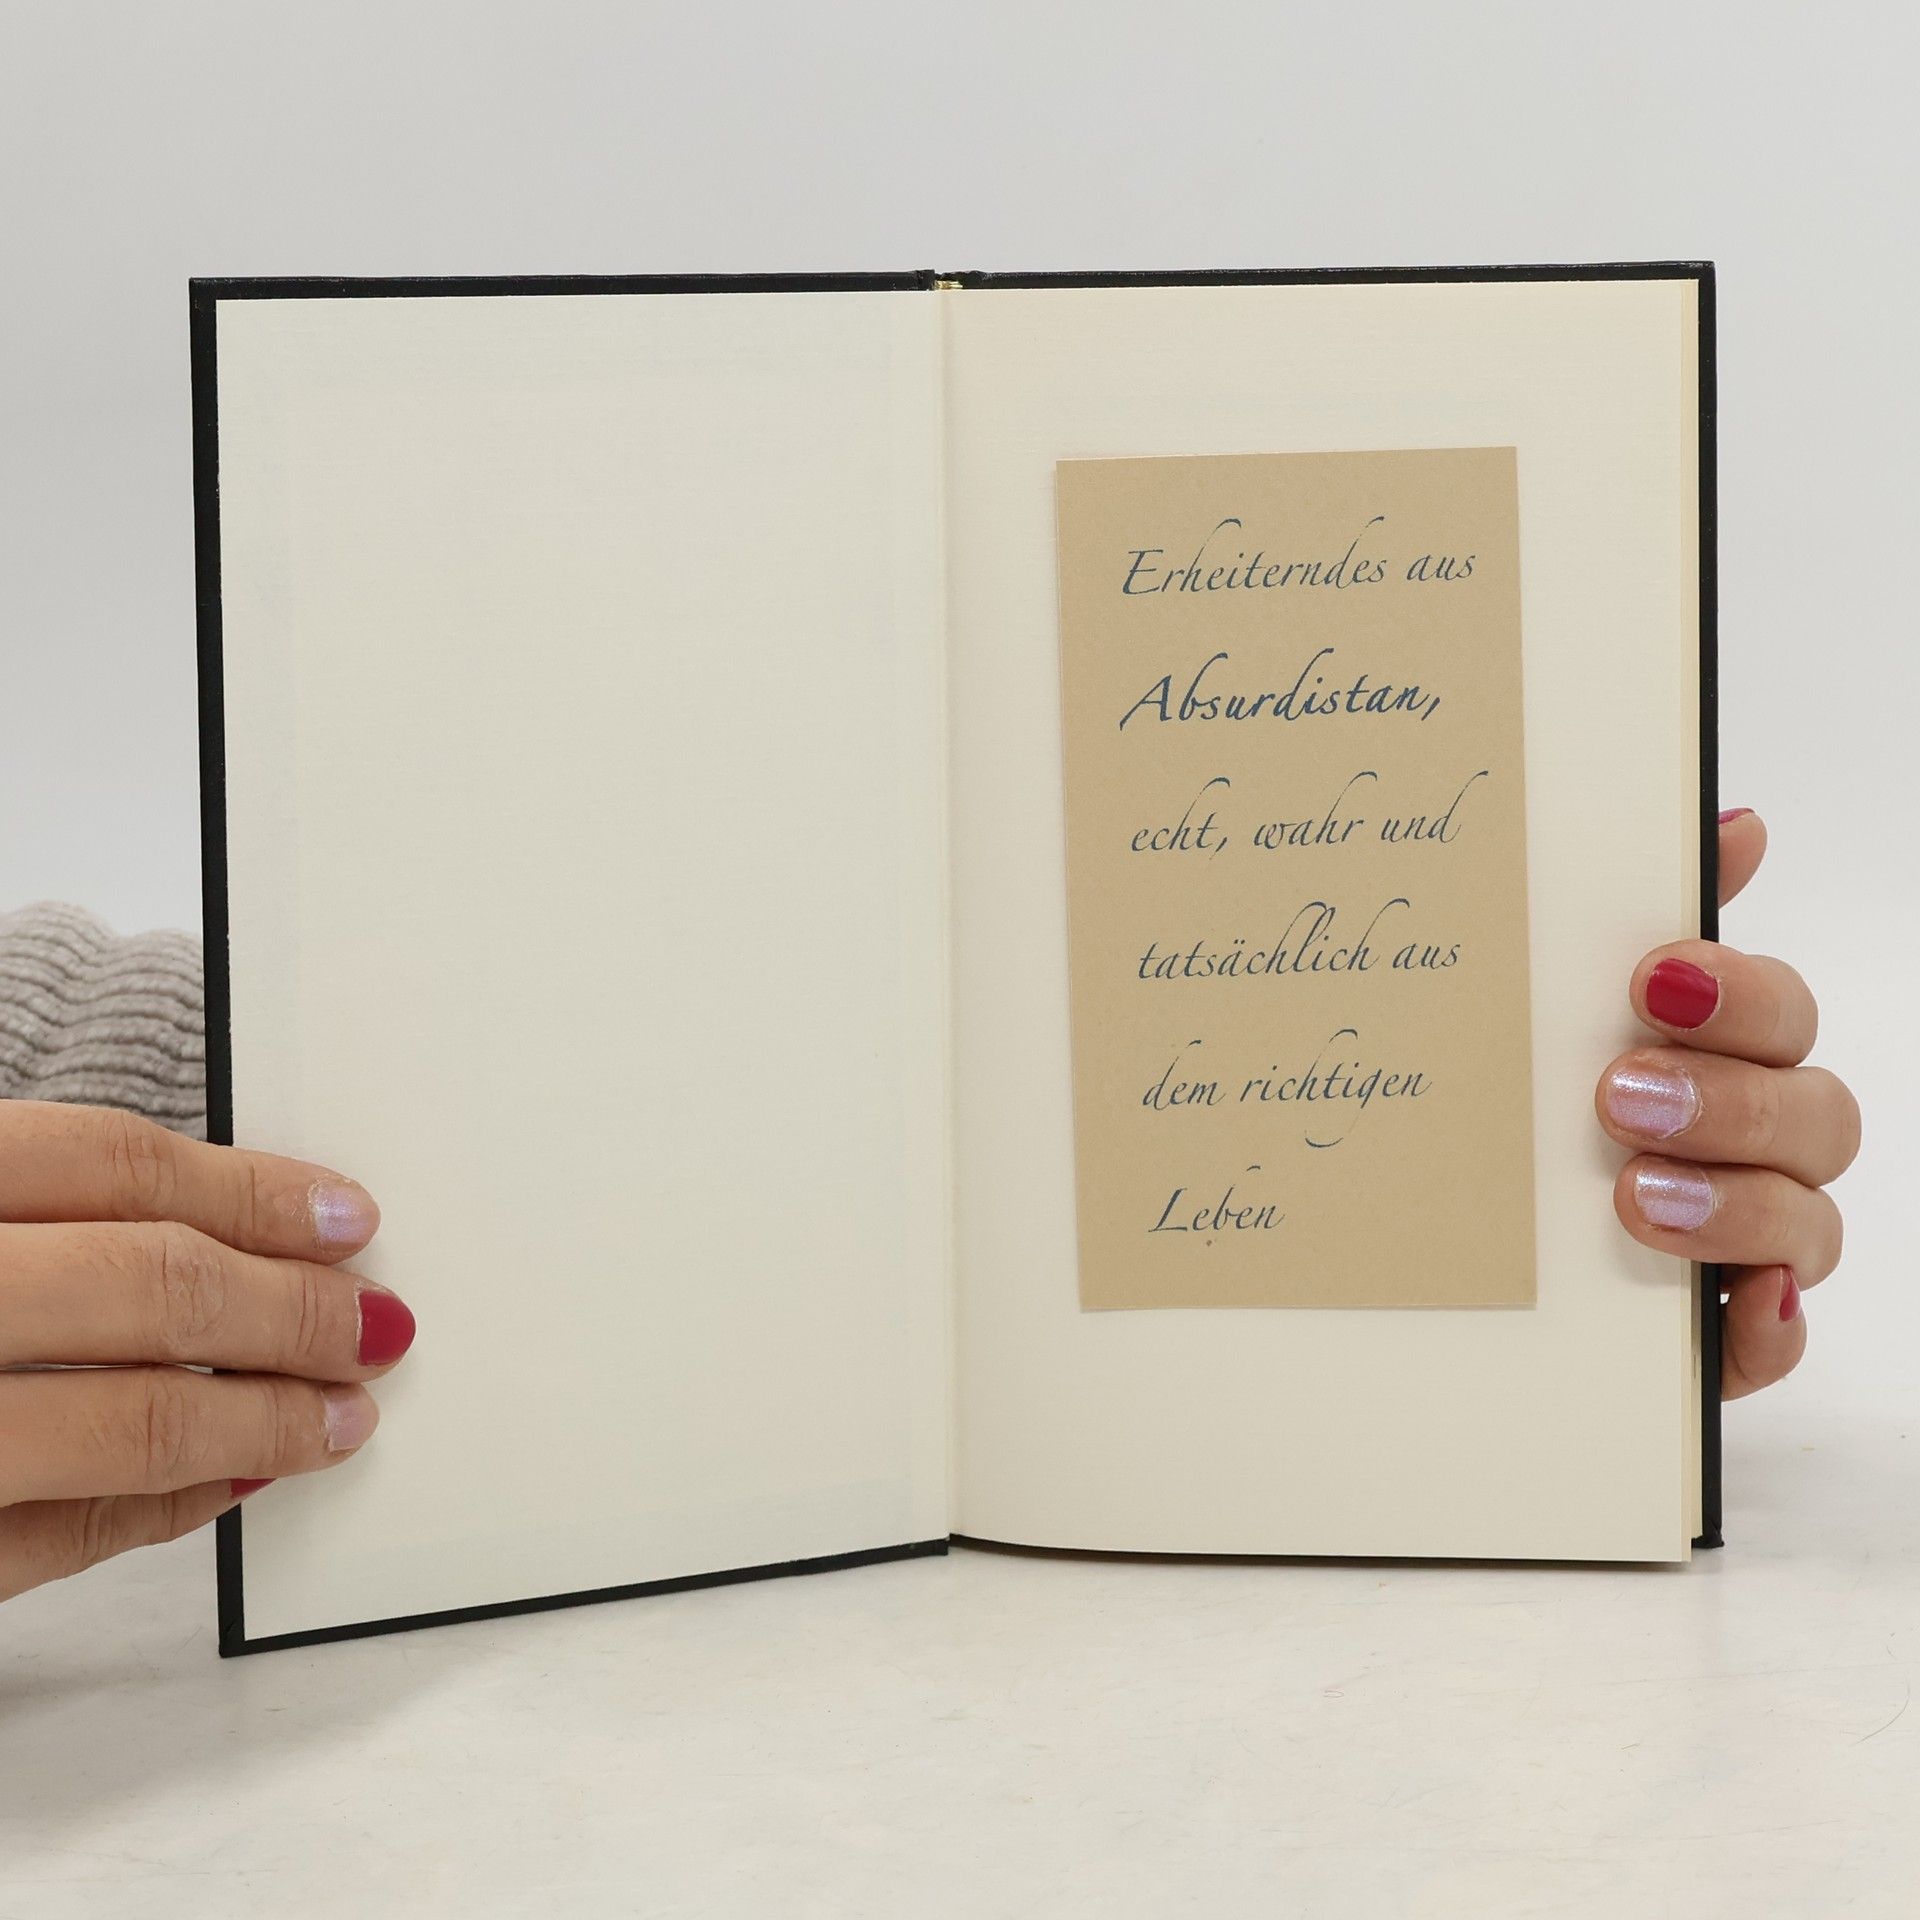 Erheiterndes aus
Absurdistan,
echt, wahr und
tatsächlich aus
dem richtigen
Leben